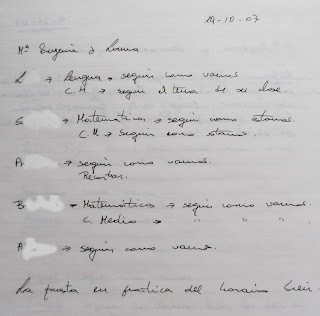 19-10-07
Mª Eugenia y Lorena
L → Lengua → seguir como vamos.
C.M → seguir el tema de su clase.
S → Matemáticas → seguir como estamos.
C.M → seguir como estamos.
A → seguir como vamos.
Recortar.
B → Matemáticas → seguir como vamos.
C. Medio → " " "
A → seguir como vamos.
La puesta en práctica del horario